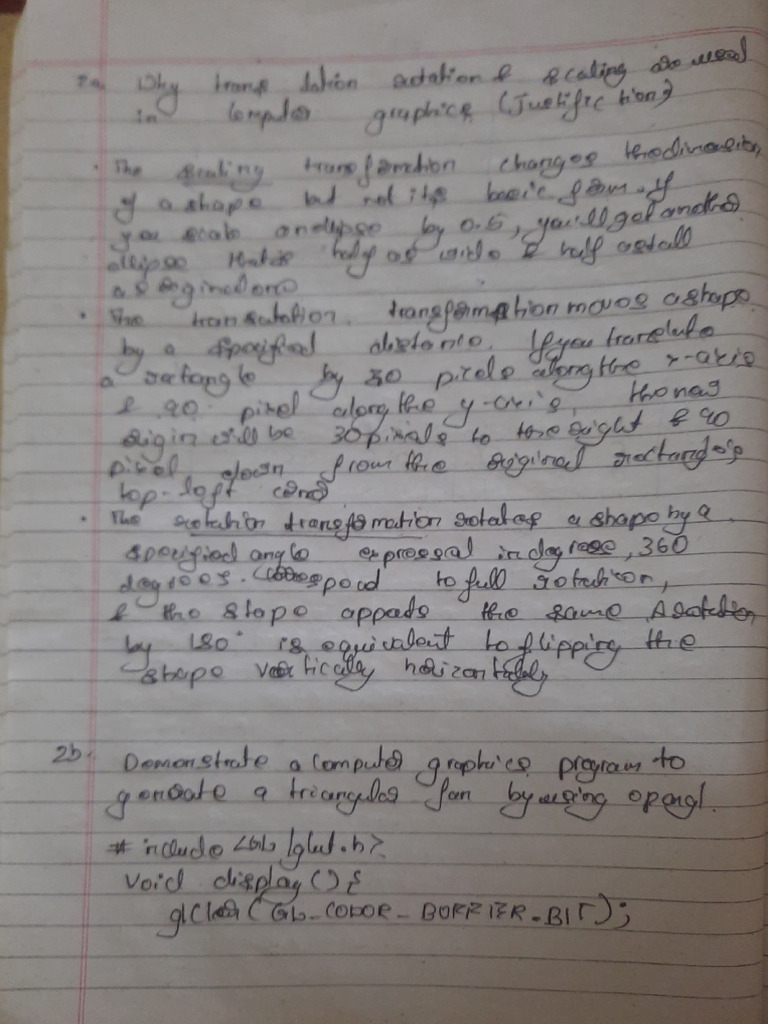 2a. Why trans lation rotation & scaling are used
in computer graphics (Justific tion)
• The scaling transformation changes the dimension
of a shape but not its basic form. If
you scale an ellipse by 0.5, you'll get another
ellipse that is half as wide & half as tall
as original one
• The translation. transformation moves a shape
by a specified distance. If you translate
a rectangle by 30 pixels along the x-axis
& 90 pixel along the y-axis, the new
origin will be 30 pixels to the right & 90
pixel down from the original rectangle's
top-left
• The rotation transformation rotates a shape by a
specified angle expressed in degrees, 360
degrees. to full rotation,
& the shape appears the same A rotation
by 180° is equivalent to flipping the
shape vertically horizontally
2b. Demonstrate a computer graphics program to
generate a triangular fan by using opengl.
# include <GL/glut.h>
void display() {
glClear(GL_COLOR_BUFFER_BIT);